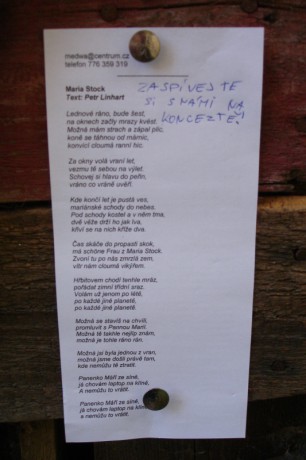 medwa@centrum.cz
telefon 776 359 319
ZASPÍVEJTE
SI S NÁMI NA
KONCERTĚ!
Maria Stock
Text: Petr Linhart
Lednové ráno, bude šest,
na oknech začly mrazy kvést.
Možná mám strach a zápal plic,
koně se táhnou od márnic,
konvicí cloumá ranní hic.
Ze okny volá vraní let,
vezmu tě sebou na výlet.
Schovej si hlavu do peřin,
vráno co vráně uvěří.
Kde končí let je pustá ves,
mariánské schody do nebes.
Pod schody kostel a v něm tma,
dvě věže drží ho jak lva,
křiví se na nich kříže dva.
Čas skáče do propasti skok,
má schöne Frau z Maria Stock.
Zvoní tu po nás zmrzlá zem,
vítr nám cloumá vikýřem.
Hřbitovem chodí tenhle mráz,
pořádat zimní třídní sraz.
Volám už jenom po létě,
po každé jiné planetě,
po každé jiné planetě.
Možná se stavíš na chvíli,
promluvit s Pannou Marií.
Možná tě takhle nejlíp znám,
možná je tohle ráno rán.
Možná jsi byla jednou z vran,
možná jsme došli právě tam,
kde nemůžu tě ztratit.
Panenko Máří ze síně,
já chovám laptop na klíně,
A nemůžu to vrátit.
Panenko Máří ze síně,
já chovám laptop na klíně,
a nemůžu to vrátit.